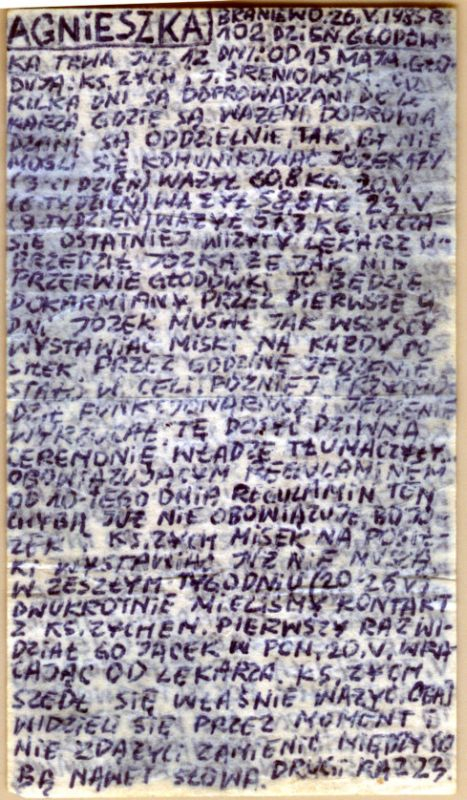 AGNIESZKA) BRANIEWO. 26.V.1985 R
102 DZIEŃ. GŁODÓW-
KA TRWA JUŻ 12 DNI: OD 15 MAJA. GŁO-
DUJĄ: KS. ZYCH, J. ŚRENIOWSKI. CO
KILKA DNI SĄ DOPROWADZANI DO LE-
KARZA. GDZIE SĄ WAŻENI. DOPROWA-
DZANI SĄ ODDZIELNIE, TAK, BY NIE
MOGLI SIĘ KOMUNIKOWAĆ. JÓZEK 17V
(3-CI DZIEŃ) WAŻYŁ 60,8 KG. 20.V.
(6-TY DZIEŃ) WAŻYŁ 58.8 KG. 23.V
(9-TY DZIEŃ) WAŻYŁ 57.3 KG. W CZA-
SIE OSTATNIEJ WIZYTY LEKARZ U-
PRZEDZIŁ JÓZKA, ŻE JAK NIE
PRZERWIE GŁODÓWKI TO BĘDZIE
DOKARMIANY. PRZEZ PIERWSZE 4
DNI JÓZEK MUSIAŁ JAK WSZYSCY
WYSTAWIAĆ MISKI NA KAŻDY PO-
SIŁEK. PRZEZ GODZINĘ JEDZENIE
STAŁO W CELI. PÓŹNIEJ
FUNKCJONARIUSZ I JEDZENIE
TĘ DOŚĆ DZIWNĄ
CEREMONIĘ WŁADZE TŁUMACZYŁY
OBOWIĄZUJĄCYM REGULAMINEM
OD 10-TEGO DNIA REGULAMIN TEN
CHYBA JUŻ NIE OBOWIĄZUJE, BO JÓ-
ZEK I KS. ZYCH MISEK NA POSIŁ-
KI WYSTAWIAĆ JUŻ NIE MUSZĄ.
W ZESZŁYM TYGODNIU (20-26 V)
DWUKROTNIE MIELIŚMY KONTAKT
Z KS. ZYCHEM. PIERWSZY RAZ WI-
DZIAŁ GO JACEK W PON. 20.V. WRA-
CAJĄC OD LEKARZA. KS. ZYCH
SZEDŁ SIĘ WŁAŚNIE WAŻYĆ. OBAJ
WIDZIELI SIĘ PRZEZ MOMENT I
NIE ZDĄŻYLI ZAMIENIĆ MIĘDZY SO-
BĄ NAWET SŁOWA. DRUGI RAZ 23.